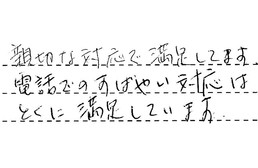 親切な対応で満足してます.
電話でのすばやい対応は
とくに満足しています.